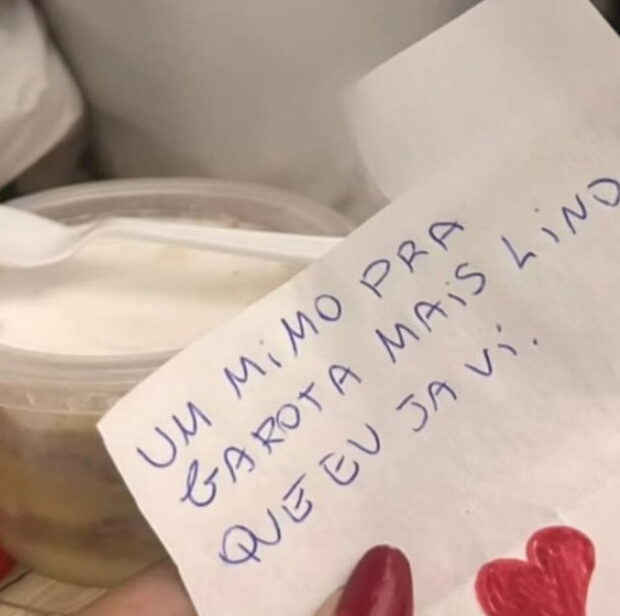 UM MiMO PRA
GAROTA MAiS LiND
QUE EU JA Vi.